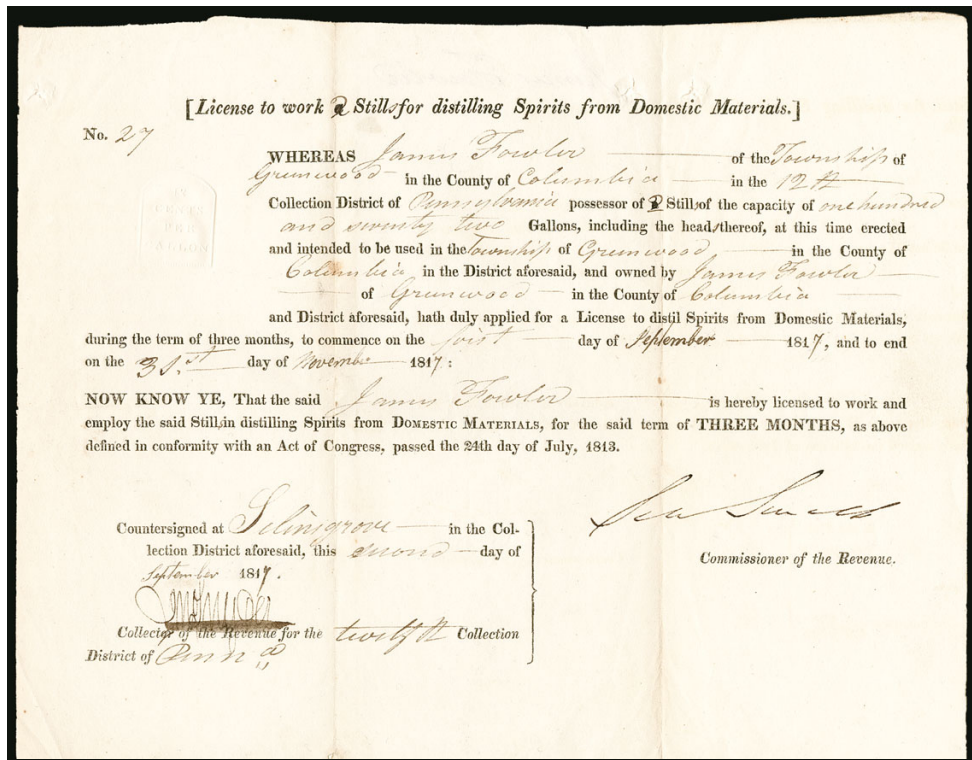 [License to work a Still for distilling Spirits from Domestic Materials.]
No. 27
WHEREAS James Fowler of the Township of
Greenwood in the County of Columbia in the 12th
Collection District of Pennsylvania possessor of a Still of the capacity of one hundred
and seventy two Gallons, including the head thereof, at this time erected
and intended to be used in the Township of Greenwood in the County of
Columbia in the District aforesaid, and owned by James Fowler
of Greenwood in the County of Columbia
and District aforesaid, hath duly applied for a License to distil Spirits from Domestic Materials,
during the term of three months, to commence on the first day of September 1817, and to end
on the 31st day of November 1817:
NOW KNOW YE, That the said James Fowler is hereby licensed to work and
employ the said Still, in distilling Spirits from DOMESTIC MATERIALS, for the said term of THREE MONTHS, as above
defined in conformity with an Act of Congress, passed the 24th day of July, 1813.
CENTS
PER
GALLON
Countersigned at Selinsgrove in the Col-
lection District aforesaid, this second day of
September 1817.
Collector of the Revenue for the twelfth Collection
District of Penna
Commissioner of the Revenue.